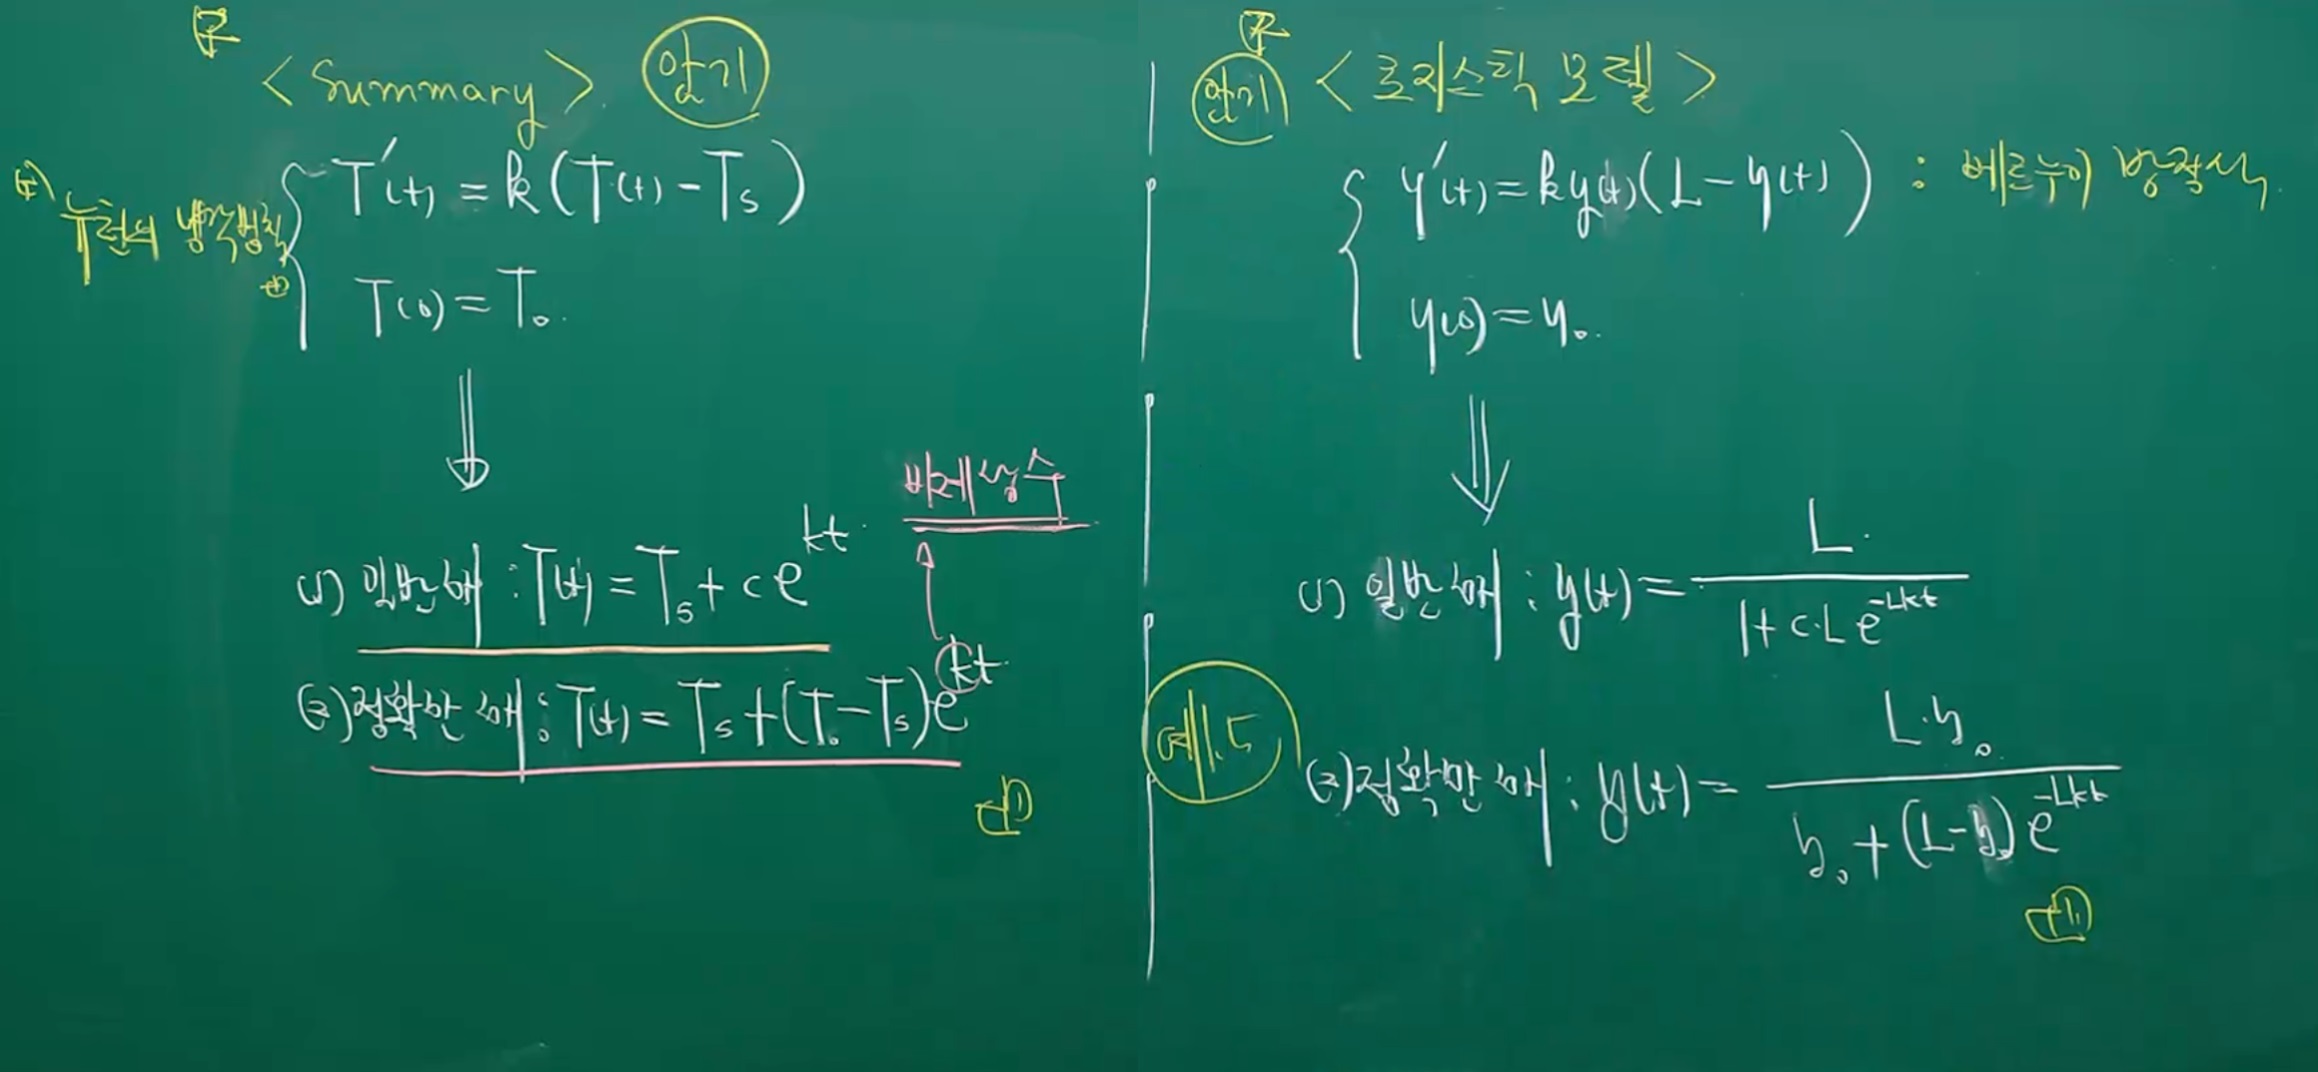 <Summary> 암기
뉴턴의 냉각법칙
T'(t) = k(T(t) - Ts)
T(0) = T₀.
⇓
비례상수
(1) 일반해 : T(t) = Ts + ce^{kt}
(2) 정확한 해 : T(t) = Ts + (T₀ - Ts)e^{kt}
암기 <로지스틱 모델>
y'(t) = ky(t)(L - y(t)) : 베르누이 방정식.
y(0) = y₀.
⇓
(1) 일반해 : y(t) = L / (1 + c·L e^{-Lkt})
예1.5
(2) 정확한 해 : y(t) = L·y₀ / (y₀ + (L - y₀)e^{-Lkt})